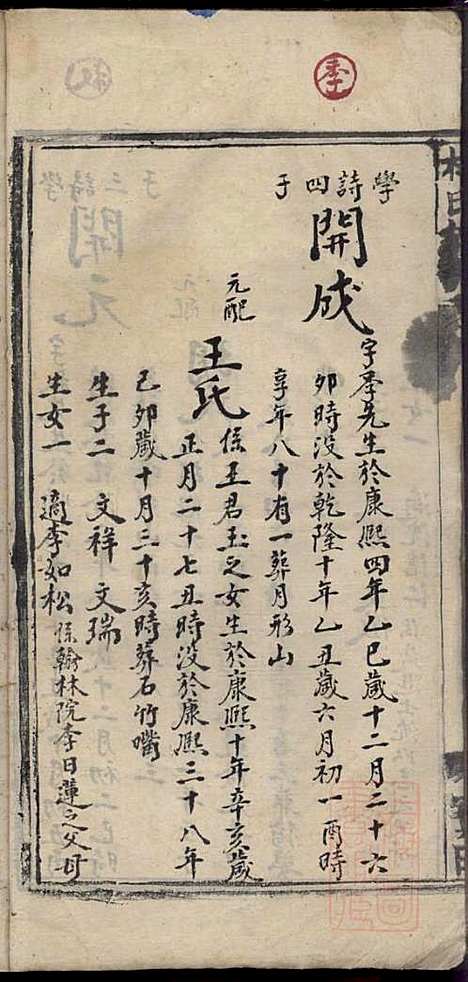 季
學詩四子
開成
字季先生於康熙四年乙巳歲十二月二十六
卯時没於乾隆十年乙丑歲六月初一酉時
享年八十有一葬月形山
元配
王氏
係王君玉之女生於康熙十年辛亥歲
正月二十七丑時没於康熙三十八年
己卯歲十月三十亥時葬石竹嘴
生子二 文祥 文瑞
生女一 適李如松係翰林院李日蓮之父母